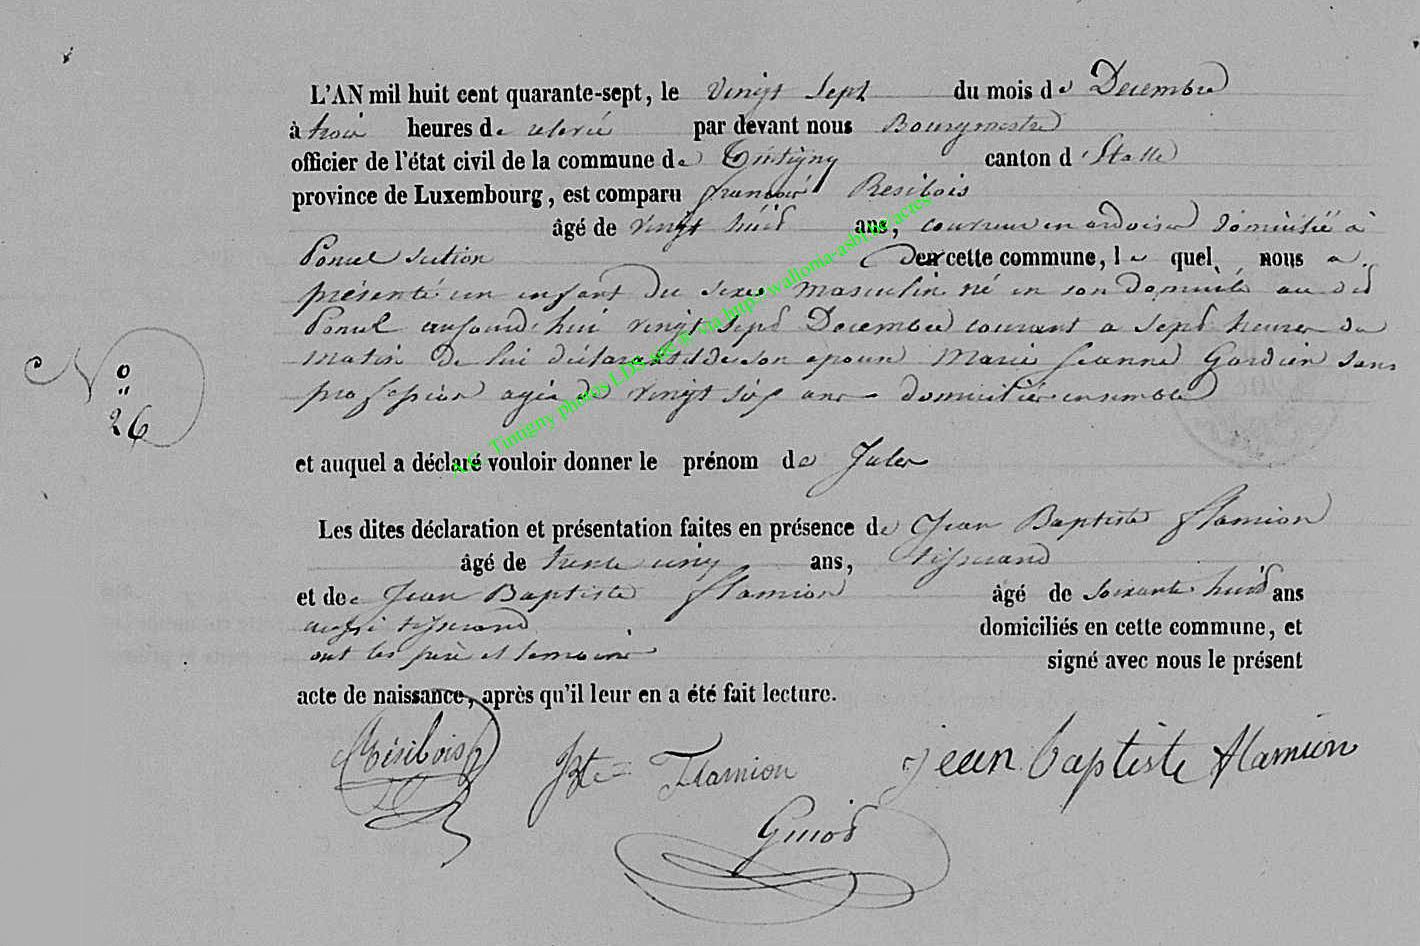 L'AN mil huit cent quarante-sept, le vingt sept du mois de Decembre
à trois heures de relevée par devant nous Bourgmestre
officier de l'état civil de la commune de Tintigny canton d'Etalle
province de Luxembourg, est comparu francois Resibois
âgé de vingt huid ans, couvreur en ardoises domicilié à
Poncel section de cette commune, le quel nous a
présenté un enfant du sexe masculin né en son domicile au did
Poncel aujourd'hui vingt sept Decembre courant a sept heures du
matin de lui déclarant et de son epouse Marie Jeanne Gardien sans
profession agée de vingt six ans domiciliés ensemble
N° 26
et auquel a déclaré vouloir donner le prénom de Jules
Les dites déclaration et présentation faites en présence de Jean Baptiste flamion
âgé de trente cinq ans, tisserand
et de Jean Baptiste flamion âgé de soixante huid ans
aussi tisserand domiciliés en cette commune, et
ont les père et temoins signé avec nous le présent
acte de naissance, après qu'il leur en a été fait lecture.
Résibois JBte Flamion jean baptiste flamion
Guiod
A.C. Tintigny photos LDS mis à via http://wallonia-asbl.be/actes